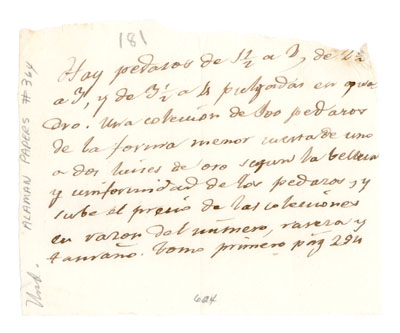 181
Hay pedazos de 1½ a 3, de 2½
a 3, y de 3½ a 4 pulgadas en qua
dro. Una coleccion de 100 pedazos
de la forma menor cuesta de uno
a dos luises de oro segun la belleza
y uniformidad de los pedazos, y
sube el precio de las colecciones
en razon del número, rareza y
tamaño. Tomo primero pág 294
604
Und. ALAMAN PAPERS # 364